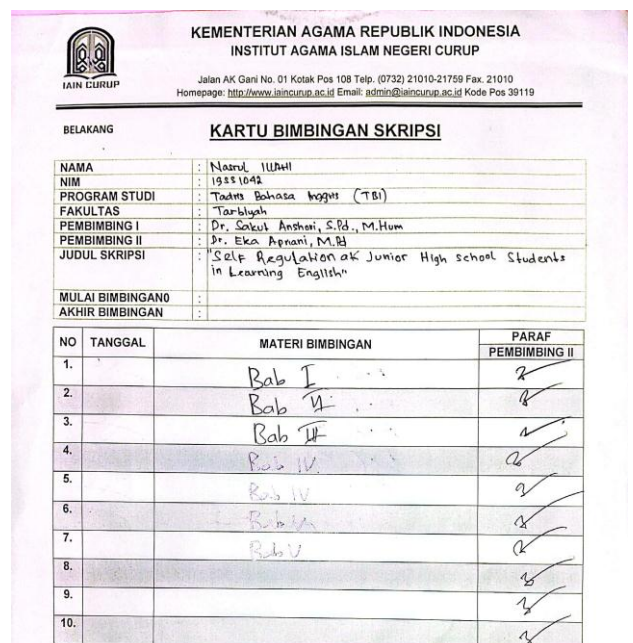 IAIN CURUP
KEMENTERIAN AGAMA REPUBLIK INDONESIA
INSTITUT AGAMA ISLAM NEGERI CURUP
Jalan AK Gani No. 01 Kotak Pos 108 Telp. (0732) 21010-21759 Fax. 21010
Homepage: http://www.iaincurup.ac.id Email: admin@iaincurup.ac.id Kode Pos 39119
BELAKANG
KARTU BIMBINGAN SKRIPSI
NAMA : Nasrul
NIM : 19551042
PROGRAM STUDI : Tadris Bahasa Inggris (TBI)
FAKULTAS : Tarbiyah
PEMBIMBING I : Dr. Sakut Anshori, S.Pd., M.Hum
PEMBIMBING II : Dr. Eka Apriani, M.Pd
JUDUL SKRIPSI : "Self Regulation at Junior High school Students
in Learning English"
MULAI BIMBINGAN0 :
AKHIR BIMBINGAN :
NO TANGGAL MATERI BIMBINGAN PARAF
PEMBIMBING II
1. Bab I
2. Bab
3. Bab
4. Bab IV
5. Bab IV
6. Bab
7. Bab V
8.
9.
10.